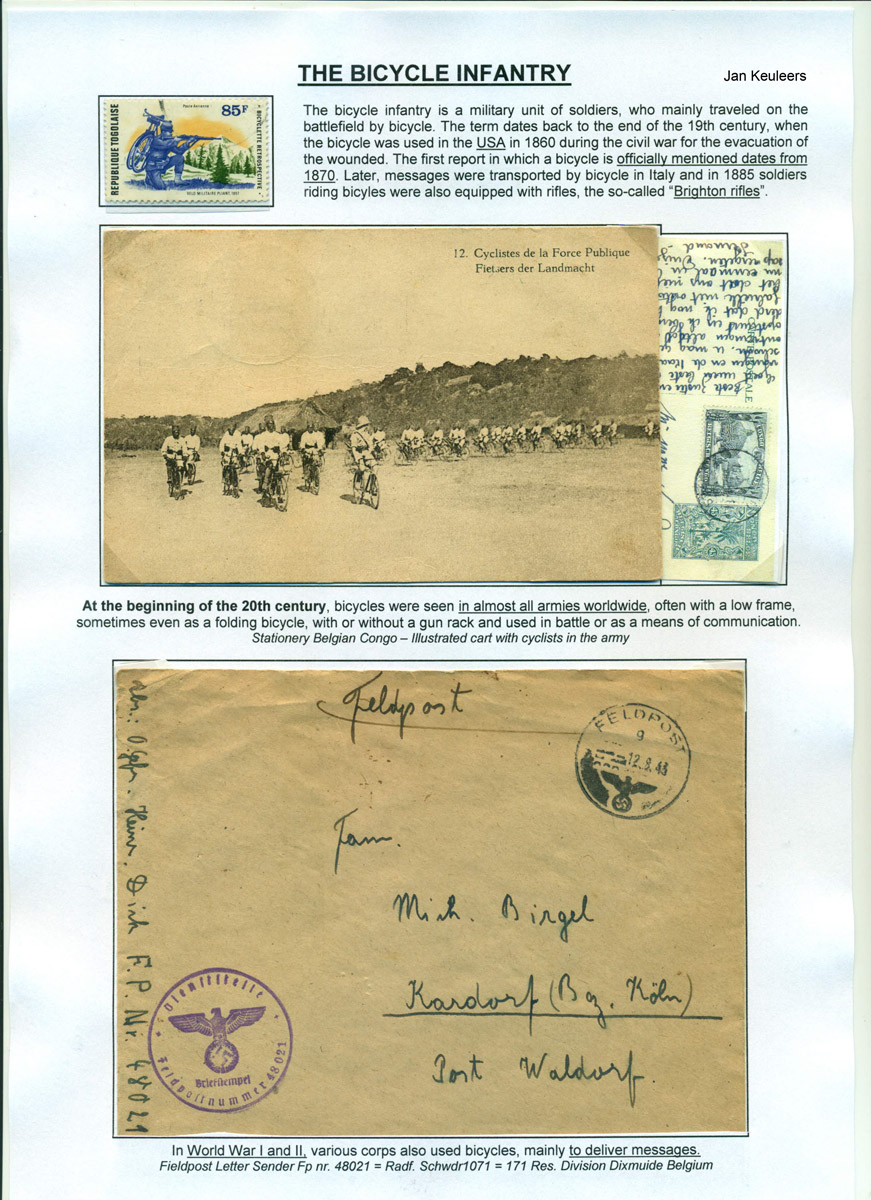 THE BICYCLE INFANTRY
Jan Keuleers
REPUBLIQUE TOGOLAISE
Poste Aerienne
85F
BICYCLETTE RETROSPECTIVE
The bicycle infantry is a military unit of soldiers, who mainly traveled on the
battlefield by bicycle. The term dates back to the end of the 19th century, when
the bicycle was used in the USA in 1860 during the civil war for the evacuation of
the wounded. The first report in which a bicycle is officially mentioned dates from
1870. Later, messages were transported by bicycle in Italy and in 1885 soldiers
riding bicyles were also equipped with rifles, the so-called “Brighton rifles”.
12. Cyclistes de la Force Publique
Fietsers der Landmacht
CARTE POSTALE
At the beginning of the 20th century, bicycles were seen in almost all armies worldwide, often with a low frame,
sometimes even as a folding bicycle, with or without a gun rack and used in battle or as a means of communication.
Stationery Belgian Congo – Illustrated cart with cyclists in the army
Feldpost
FELDPOST
g
12.8.43
Fam.
Mich. Birgel
Kardorf (Bz. Köln)
Post Waldorf.
Heinr. Dick F.P. Nr. 48021
Dienststelle
Briefstempel
Feldpostnummer 48021
In World War I and II, various corps also used bicycles, mainly to deliver messages.
Fieldpost Letter Sender Fp nr. 48021 = Radf. Schwdr1071 = 171 Res. Division Dixmuide Belgium